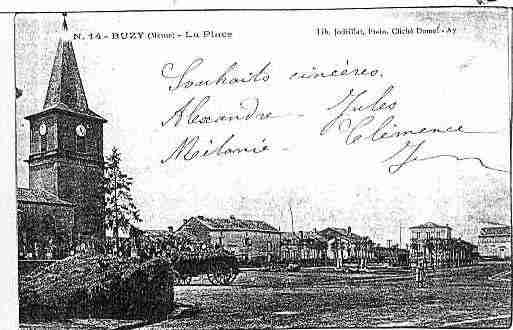 N. 14 - BUZY (Meuse) - La Place
Lib. Cliché - Ay
Souhaits sincères.
Alexandre - Jules
Mélanie - Clémence